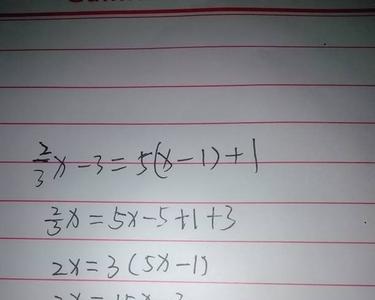 2/3 x - 3 = 5(x - 1) + 1
2/3 x = 5x - 5 + 1 + 3
2x = 3(5x - 1)